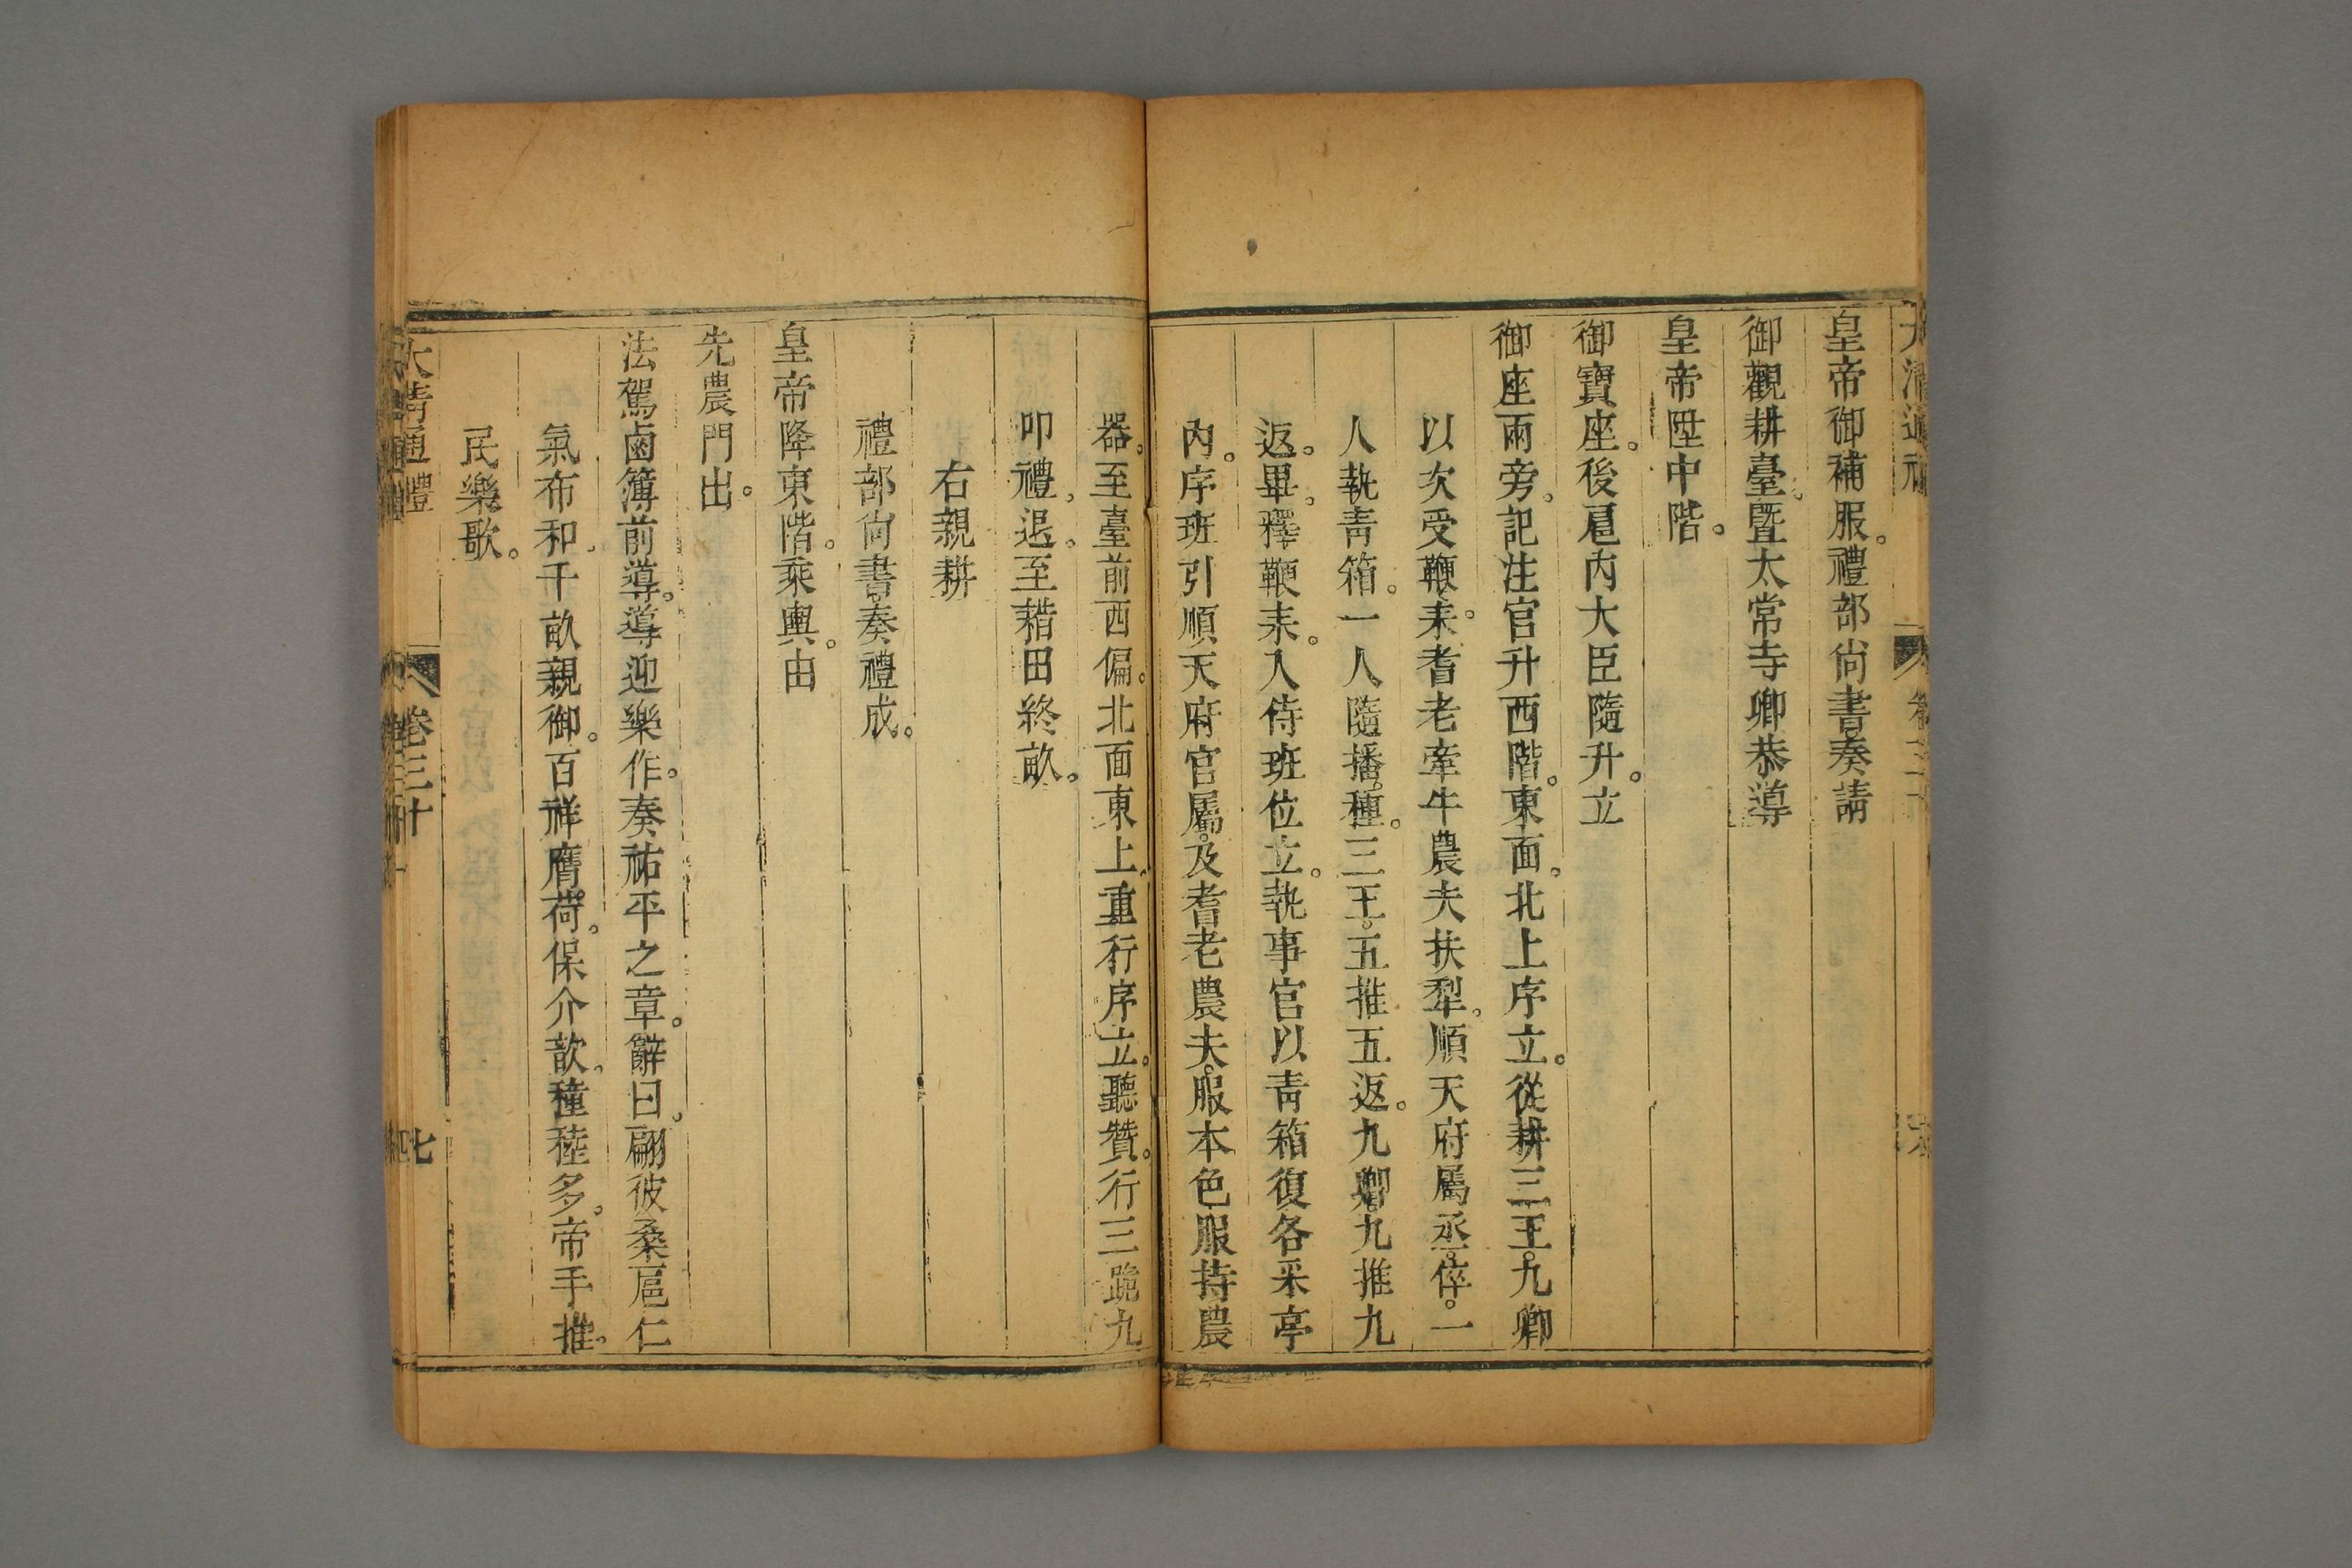 皇帝御補服。禮部尙書奏請
御觀耕臺。曁太常寺卿恭導
皇帝陞中階。
御寶座。後扈內大臣隨升。立
御座兩旁。記注官升西階。東面。北上序立。從耕三王。九卿
以次受鞭耒。耆老牽牛。農夫扶犁。順天府屬丞。倅。一
人執靑箱。一人隨播。種。三王。五推五返。九卿。九推九
返。畢。釋鞭耒。入侍班位立。執事官以靑箱復各采亭
內。序班引順天府官屬。及耆老農夫。服本色服持農
器。至臺前西偏。北面東上。重行序立。聽贊。行三跪九
叩禮。退。至耤田終畝。
右親耕
禮部尙書奏禮成。
皇帝降東階。乘輿。由
先農門出。
法駕鹵簿前導。導迎樂作。奏祐平之章。辭曰。翩彼桑扈仁
氣布和。千畝親御。百祥膺荷。保介歆。穜稑多。帝手推。
民樂歌。
大淸通禮
卷三十
七